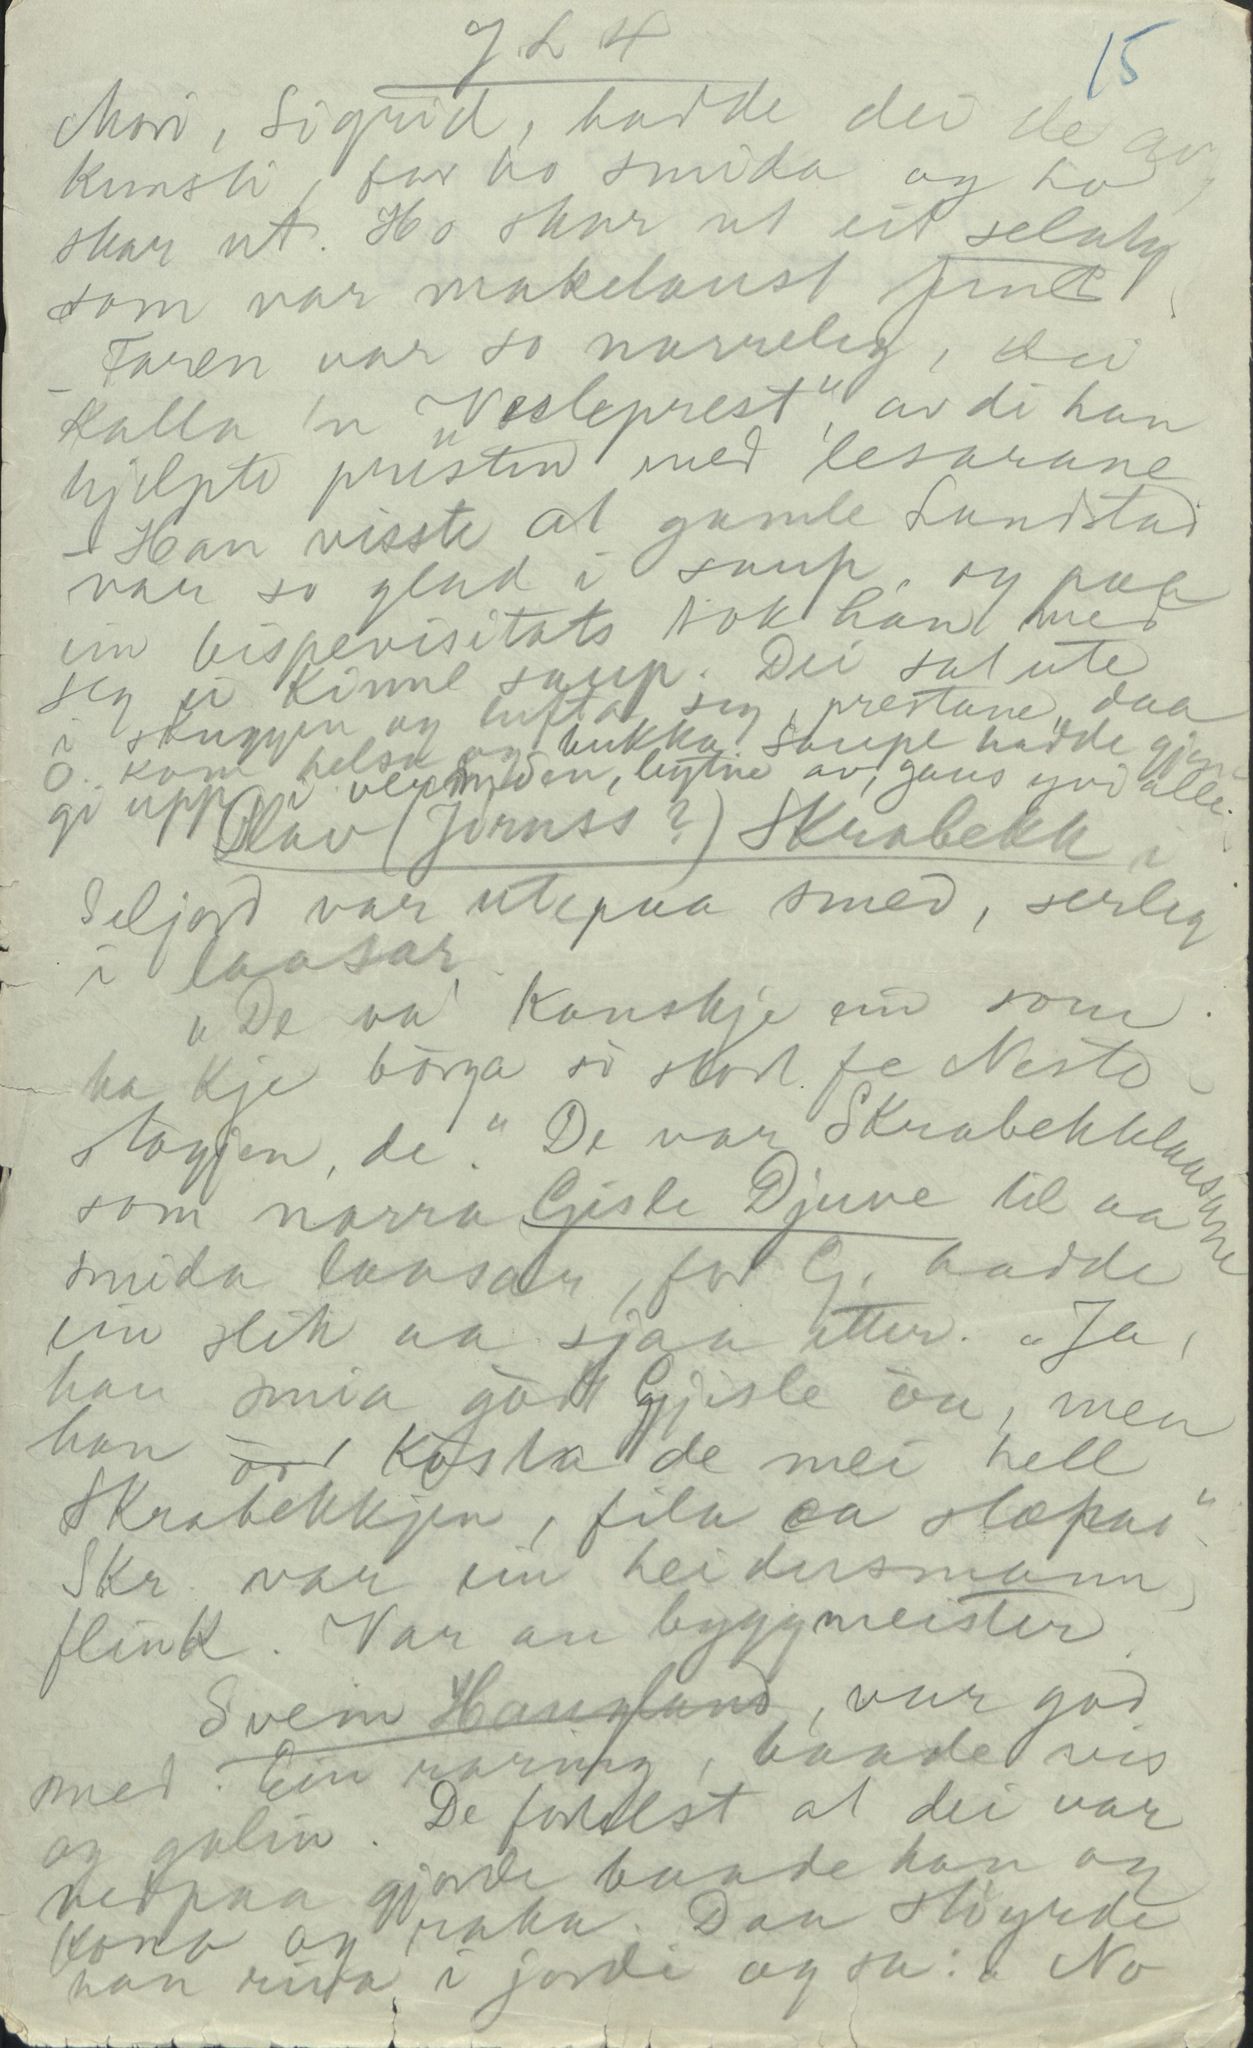 15
Mori, Sigrid, hadde dei de av
kunsti, for ho smida og ho
skar ut. Ho skar ut eit selaty
som var makelaust fint
- Faren var so narreleg, dei
kalla 'n "Vesleprest", av di han
hjelpte presten med lesarane
- Han visste at gamle Landstad
var so glad i saup, og paa
ein bispevisitats tok han med
seg ei kinne saup. Dei sat ute
i skuggen og lufta seg, prestane, daa
O. kom helsa og bukka. Saupe hadde gjenne
gi upp i varmen, av, yvi alle.
Olav (Jorunss?) Skrabekk i
Seljord var utepaa smed, serleg
i laasar
"De va' kanskje ein som
ha kje börga so stort fe Nesto
stoggen, de." De var Skrabekklaasane
som narra Gjisle Djuve til aa
smida laasar, for Gj. hadde
ein slik aa sjaa etter. "Ja,
han smia godt Gjisle öu, men
han kosta de mei hell
Skrabekkjen, fila ca"
Skr. var ein heidersmann,
flink. Var au byggmeister
Svein Haugland, var god
smed. Ein raring, baade vis
og galin. De fortelst at dei var
nedpaa gjorde baade han og
kono og raka. Daa stöyrde
han riva i jordi og sa: "No